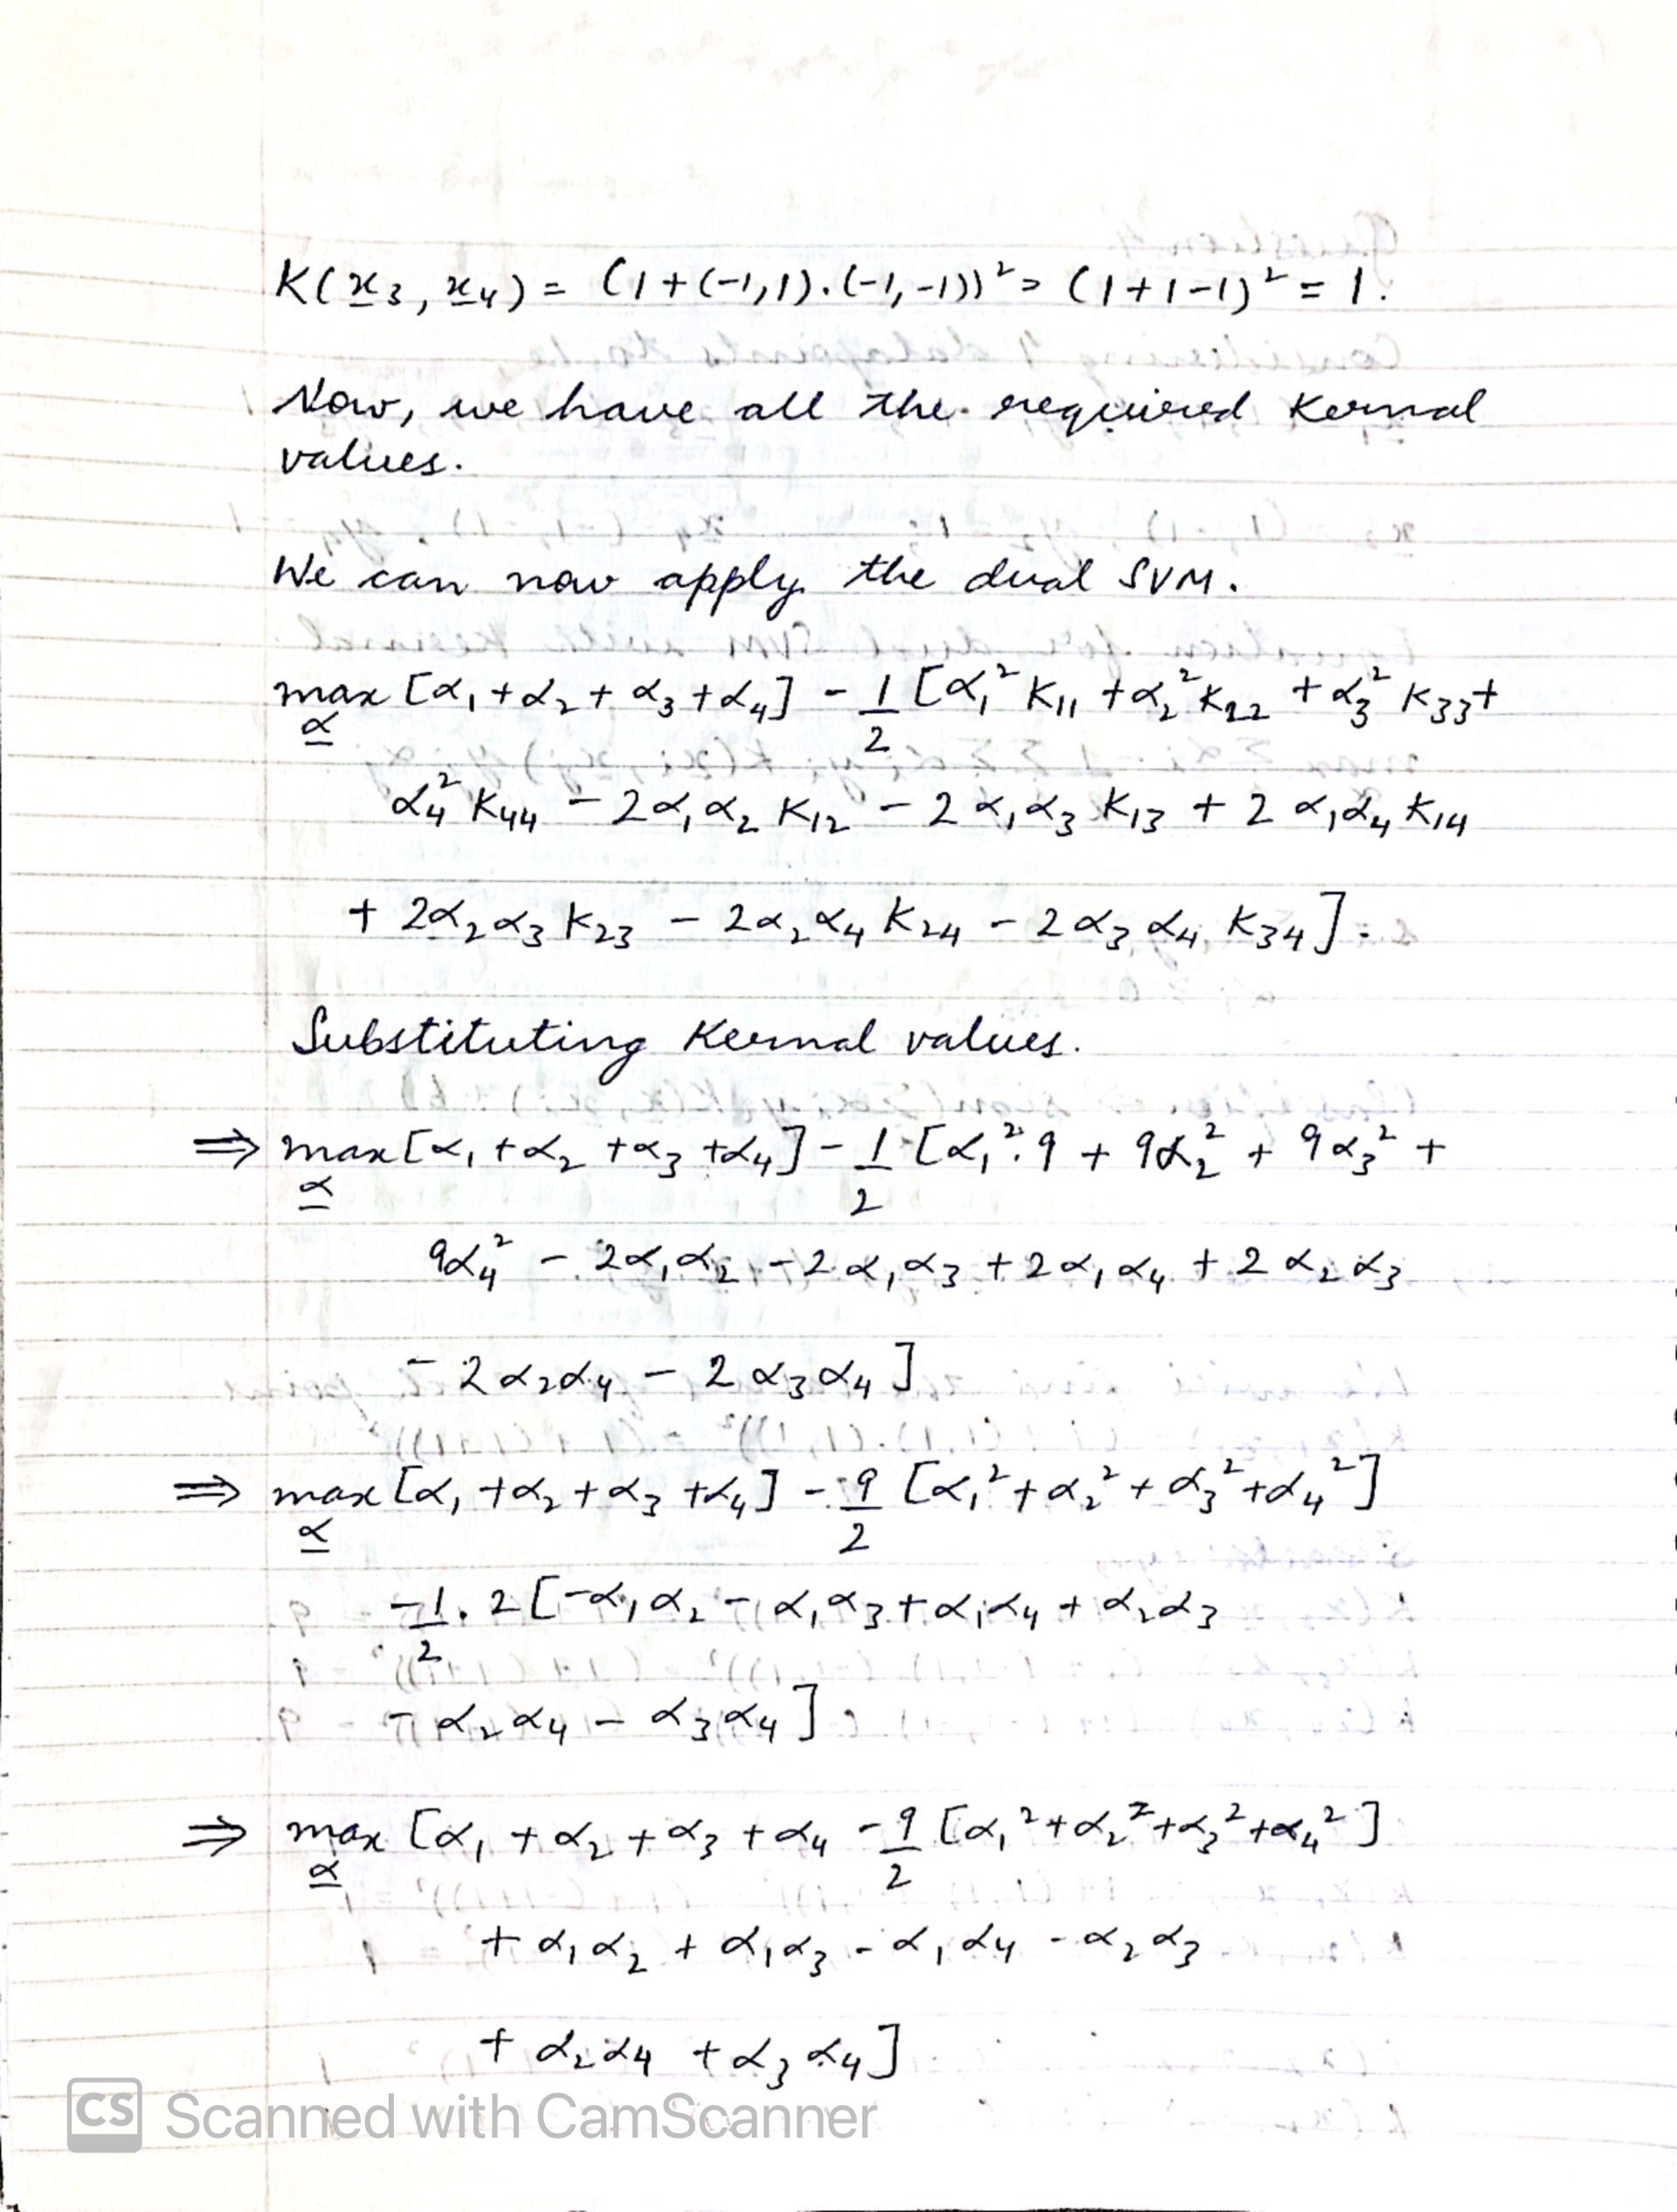 K(x̲₃, x̲₄) = (1+(-1,1).(-1,-1))² = (1+1-1)² = 1.
Now, we have all the required Kernal
values.
We can now apply the dual SVM.
max [α₁+α₂+α₃+α₄] - 1/2 [α₁²K₁₁ + α₂²K₂₂ + α₃²K₃₃+
α̲
α₄²K₄₄ - 2α₁α₂K₁₂ - 2α₁α₃K₁₃ + 2α₁α₄K₁₄
+ 2α₂α₃K₂₃ - 2α₂α₄K₂₄ - 2α₃α₄K₃₄].
Substituting Kernal values.
⇒ max[α₁+α₂+α₃+α₄] - 1/2 [α₁².9 + 9α₂² + 9α₃² +
α̲
9α₄² - 2α₁α₂ - 2α₁α₃ + 2α₁α₄ + 2α₂α₃
- 2α₂α₄ - 2α₃α₄]
⇒ max[α₁+α₂+α₃+α₄] - 9/2 [α₁²+α₂²+α₃²+α₄²]
α̲
-1/2 . 2[-α₁α₂ - α₁α₃+α₁α₄ + α₂α₃
- α₂α₄ - α₃α₄]
⇒ max [α₁+α₂+α₃+α₄ - 9/2 [α₁²+α₂²+α₃²+α₄²]
α̲
+ α₁α₂ + α₁α₃ - α₁α₄ - α₂α₃
+ α₂α₄ + α₃α₄]
CS Scanned with CamScanner